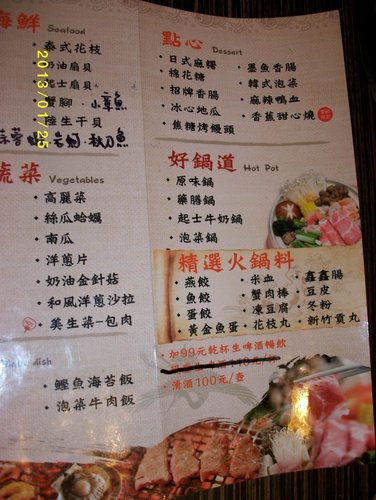 海鮮 Seafood
泰式花枝
奶油扇貝
起士扇貝
蟹腳 小章魚
陸生干貝
秋刀魚
蔬菜 Vegetables
高麗菜
絲瓜蛤蠣
南瓜
洋蔥片
奶油金針菇
和風洋蔥沙拉
美生菜-包肉
鰹魚海苔飯
泡菜牛肉飯
點心 Dessert
日式麻糬
棉花糖
招牌香腸
冰心地瓜
焦糖烤饅頭
墨魚香腸
韓式泡菜
麻辣鴨血
香蕉甜心燒
好鍋道 Hot Pot
原味鍋
藥膳鍋
起士牛奶鍋
泡菜鍋
精選火鍋料
燕餃
魚餃
蛋餃
黃金魚蛋
米血
蟹肉棒
凍豆腐
花枝丸
鑫鑫腸
豆皮
冬粉
新竹貢丸
加99元乾杯生啤酒暢飲
清酒100元/壺
2013/01/25